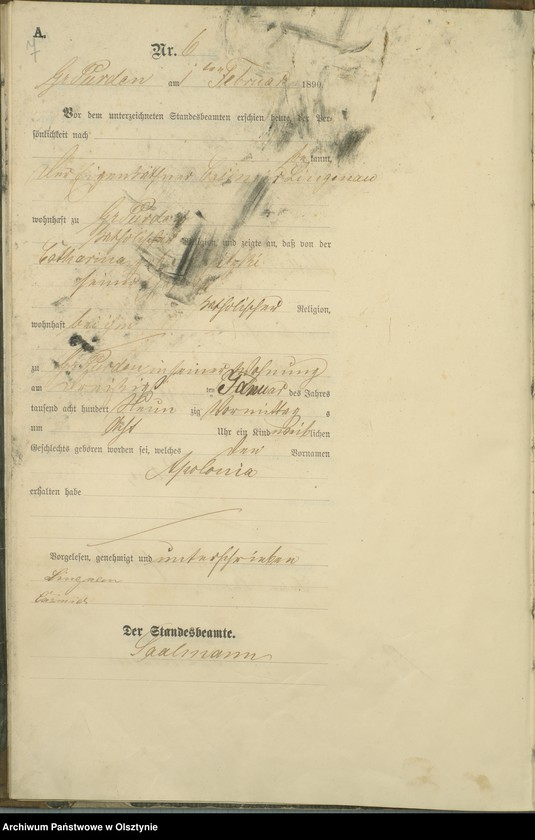 A.
7
Nr. 6
Gr Purden am 1 ten Februar 1890
Vor dem unterzeichneten Standesbeamten erschien heute, der Per-
sönlichkeit nach
be kannt,
der Eigenkäthner Lingenau
wohnhaft zu Gr Purden
katholischer Religion, und zeigte an, daß von der
Catharina
seiner
katholischer Religion,
wohnhaft bei ihm
zu Gr Purden in seiner Wohnung
am dreißig ten Januar des Jahres
tausend acht hundert Neun zig Vormittag s
um Acht Uhr ein Kind weib lichen
Geschlechts geboren worden sei, welches den Vornamen
Apolonia
erhalten habe
Vorgelesen, genehmigt und unterschrieben
Lingnau
Der Standesbeamte.
Saalmann
Archiwum Państwowe w Olsztynie